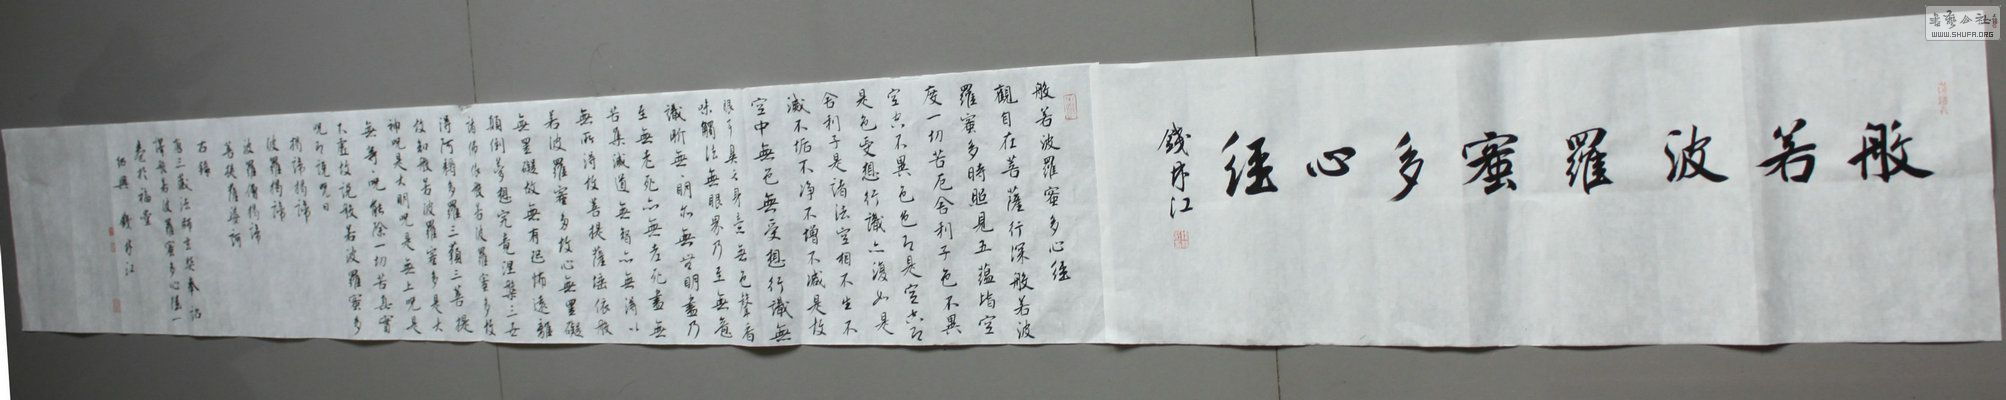 般若波羅蜜多心經
錢沛江
般若波羅蜜多心經
觀自在菩薩行深般若波
羅蜜多時照見五蘊皆空
度一切苦厄舍利子色不異
空空不異色色即是空空即
是色受想行識亦復如是
舍利子是諸法空相不生不
滅不垢不净不增不減是故
空中無色無受想行識無
眼耳鼻舌身意無色聲香
味觸法無眼界乃至無意
識界無無明亦無無明盡乃
至無老死亦無老死盡無
苦集滅道無智亦無得以
無所得故菩提薩埵依般
若波羅蜜多故心無罣礙
無罣礙故無有恐怖遠離
顛倒夢想究竟涅槃三世
諸佛依般若波羅蜜多故
得阿耨多羅三藐三菩提
故知般若波羅蜜多是大
神咒是大明咒是無上咒是
無等等咒能除一切苦真實
不虛故說般若波羅蜜多
咒即說咒曰
揭諦揭諦
波羅揭諦
波羅僧揭諦
菩提薩婆訶
右錄
唐三藏法師玄奘奉詔
譯般若波羅蜜多心經一
卷於福堂
錢沛江
书艺公社
WWW.SHUFA.ORG